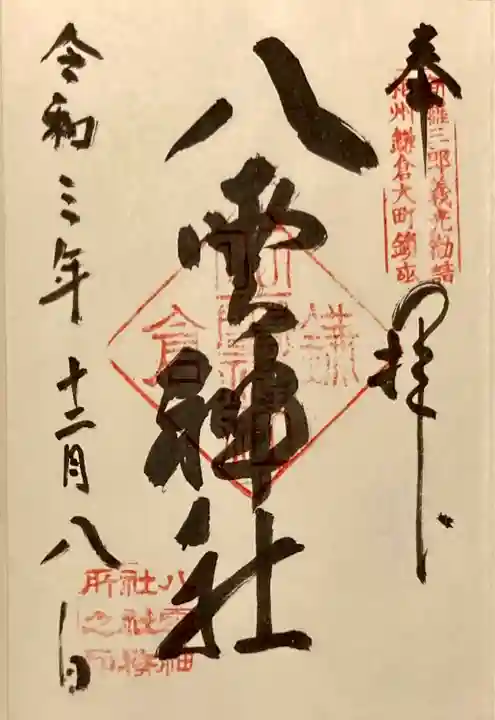 奉拝
新羅三郎義光勧請
相州鎌倉大町鎮座
八雲神社
鎌倉
令和三年十二月八日
八雲神
社社務
所之印